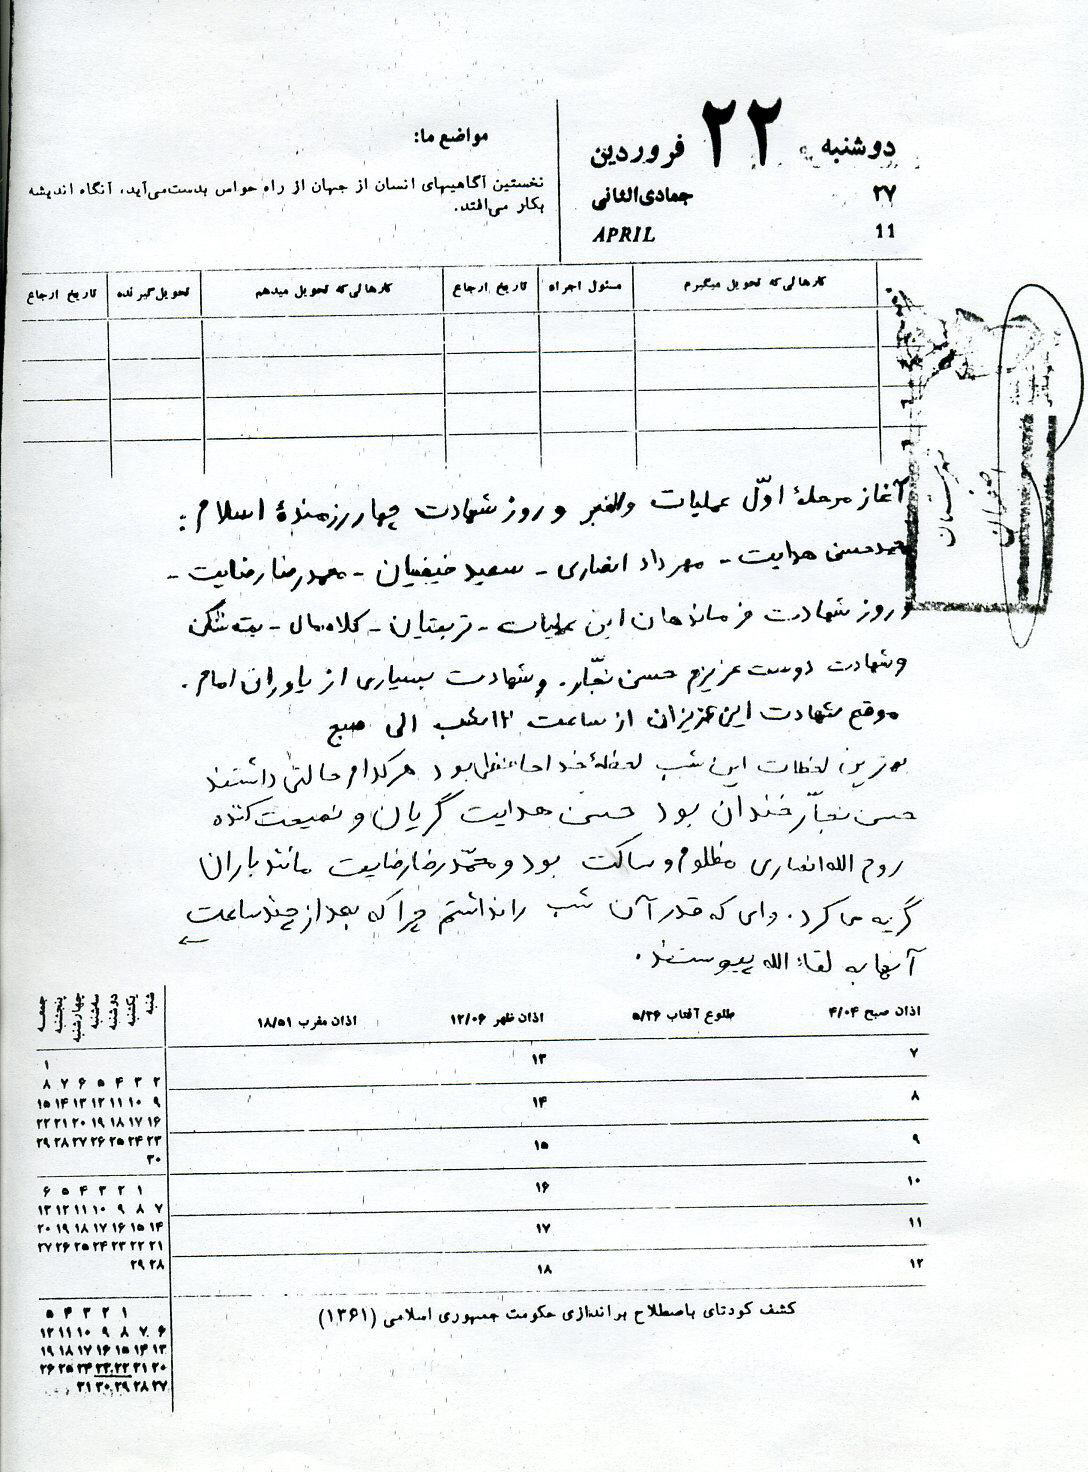 دوشنبه ۲۲ فروردین
۲۷ جمادی‌الثانی
11 APRIL
مواضع ما:
نخستین آگاهیهای انسان از جهان از راه حواس بدست‌می‌آید، آنگاه اندیشه
بکار می‌افتد.
کارهائی‌که تحویل میگیرم مسئول اجراء تاریخ ارجاع کارهائی‌که تحویل میدهم تحویل‌گیرنده تاریخ ارجاع
آغاز مرحلهٔ اوّل عملیات والفجر و روز شهادت چهار رزمندهٔ اسلام :
محمدحسن هدایت - مهرداد انصاری - سعید حنیفیان - محمدرضا رضایت -
و روز شهادت فرماندهان این عملیات - تربتیان - کلاه‌مال - بت‌شکن
و شهادت دوست عزیزم حسن نجّار. و شهادت بسیاری از یاوران امام.
موقع شهادت این عزیزان از ساعت ۱۲شب الی صبح
بهترین لحظات این شب لحظهٔ خداحافظی بود هرکدام حالتی داشتند
حسن نجّار خندان بود حسن هدایت گریان و نصیحت‌کننده
روح الله انصاری مظلوم و ساکت بود و محمّدرضا رضایت مانند باران
گریه می‌کرد. وای که قدر آن شب را نداشتم چرا که بعد از چند ساعت
آنها به لقاءالله پیوستند.
اذان صبح ۴/۰۴ طلوع آفتاب ۵/۳۶ اذان ظهر ۱۲/۰۶ اذان مغرب ۱۸/۵۱
۷ ۱۳
۸ ۱۴
۹ ۱۵
۱۰ ۱۶
۱۱ ۱۷
۱۲ ۱۸
شنبه یکشنبه دوشنبه سه‌شنبه چهارشنبه پنجشنبه جمعه
۱
۲ ۳ ۴ ۵ ۶ ۷ ۸
۹ ۱۰ ۱۱ ۱۲ ۱۳ ۱۴ ۱۵
۱۶ ۱۷ ۱۸ ۱۹ ۲۰ ۲۱ ۲۲
۲۳ ۲۴ ۲۵ ۲۶ ۲۷ ۲۸ ۲۹
۳۰
۱ ۲ ۳ ۴ ۵ ۶
۷ ۸ ۹ ۱۰ ۱۱ ۱۲ ۱۳
۱۴ ۱۵ ۱۶ ۱۷ ۱۸ ۱۹ ۲۰
۲۱ ۲۲ ۲۳ ۲۴ ۲۵ ۲۶ ۲۷
۲۸ ۲۹
۱ ۲ ۳ ۴ ۵
۶ ۷ ۸ ۹ ۱۰ ۱۱ ۱۲
۱۳ ۱۴ ۱۵ ۱۶ ۱۷ ۱۸ ۱۹
۲۰ ۲۱ ۲۲ ۲۳ ۲۴ ۲۵ ۲۶
۲۷ ۲۸ ۲۹ ۳۰ ۳۱
کشف کودتای باصطلاح براندازی حکومت جمهوری اسلامی (۱۳۶۱)